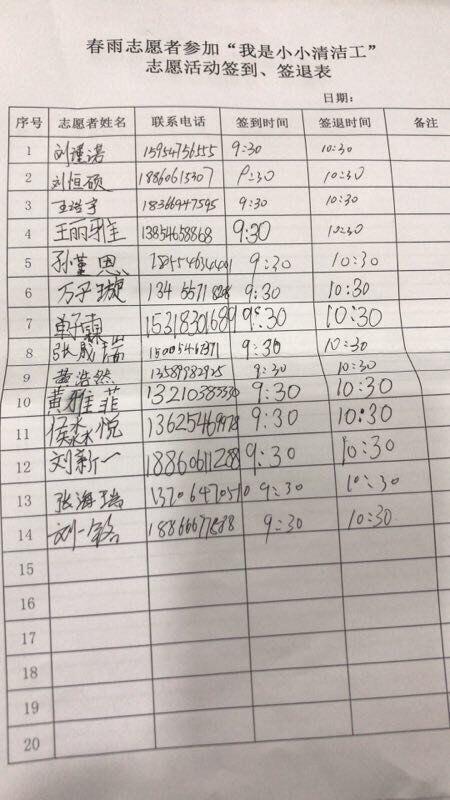 春雨志愿者参加“我是小小清洁工”
志愿活动签到、签退表
日期：
序号 志愿者姓名 联系电话 签到时间 签退时间 备注
1 刘谨诺 15954756555 9:30 10:30
2 刘恒硕 18860615307 9:30 10:30
3 王浩宇 18366947595 9:30 10:30
4 王丽雅 13854658868 9:30 10:30
5 孙董恩 9:30 10:30
6 万子璇 9:30 10:30
7 15318301689 9:30 10:30
8 张晟瑞 9:30 10:30
9 黄浩然 13589982925 9:30 10:30
10 黄雅菲 9:30 10:30
11 侯悦 9:30 10:30
12 刘新一 18860611288 9:30 10:30
13 张海瑞 13706470510 9:30 10:30
14 刘一铭 9:30 10:30
15
16
17
18
19
20